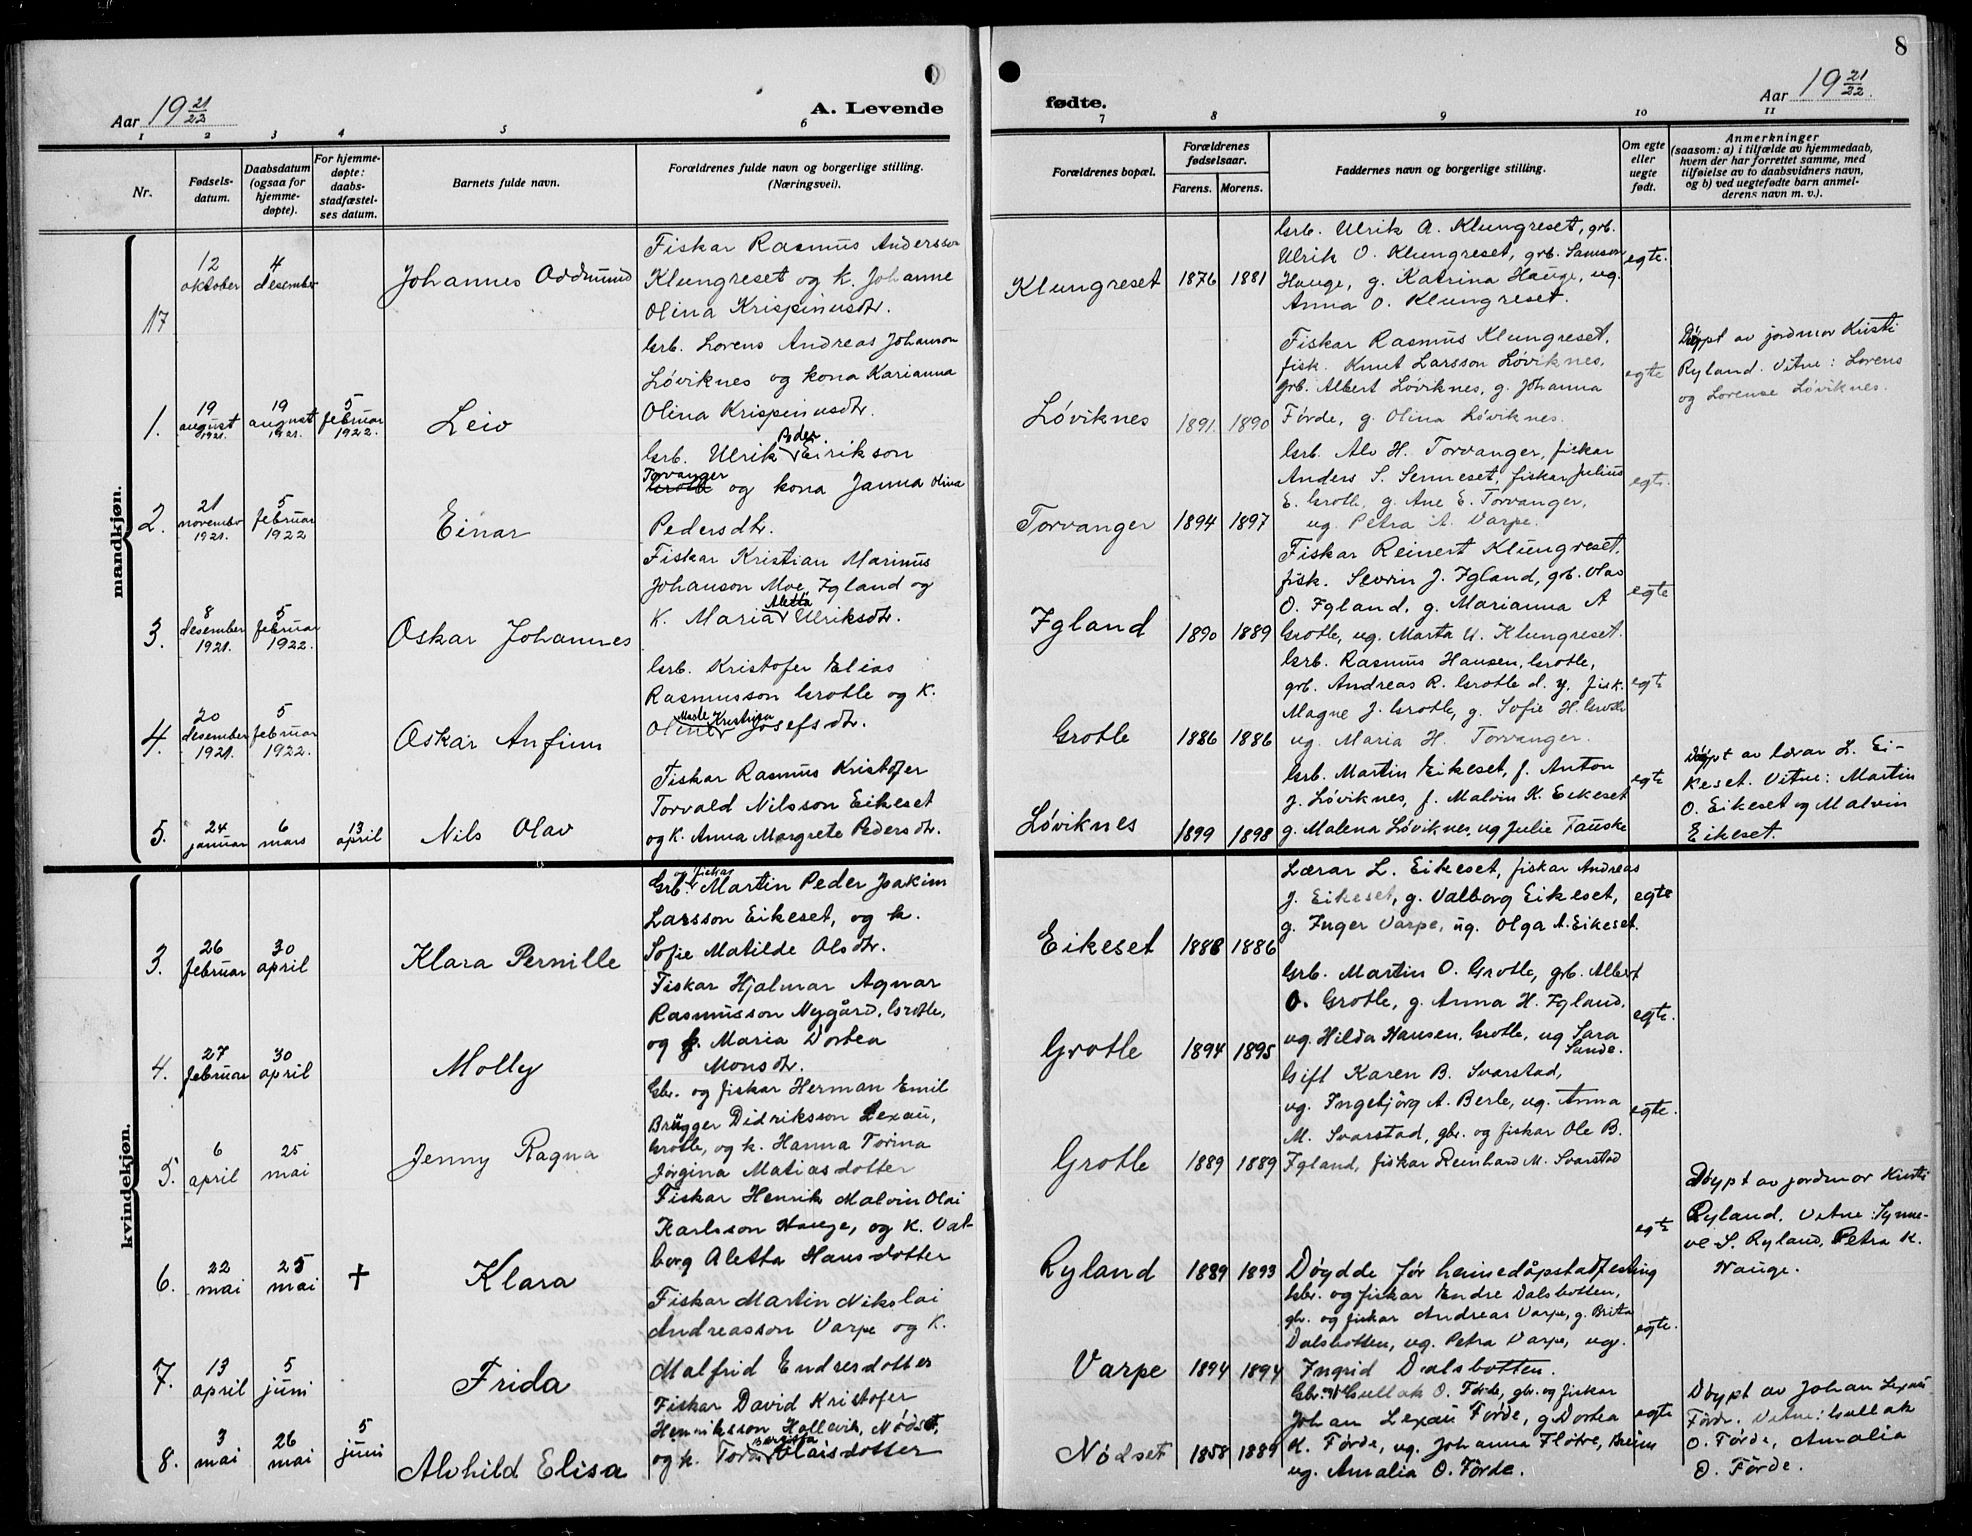 8
Aar 19 21/22
A. Levende
fødte.
Aar 19 21/22.
1 2 3 4 5 6 7 8 9 10 11
Nr.
Fødsels-
datum.
Daabsdatum
(ogsaa for
hjemme-
døpte).
For hjemme-
døpte:
daabs-
stadfæstel-
ses datum.
Barnets fulde navn.
Forældrenes fulde navn og borgerlige stilling.
(Næringsvei).
Forældrenes bopæl.
Forældrenes
fødselsaar.
Farens. Morens.
Faddernes navn og borgerlige stilling.
Om egte
eller
uegte
født.
Anmerkninger
(saasom: a) i tilfælde av hjemmedaab,
hvem der har forrettet samme, med
tilføielse av to daabsvidners navn,
og b) ved uegtefødte barn anmel-
derens navn m. v.).
mandkjøn.
17
12
oktober
4
desember
Johannes Oddmund
Fiskar Rasmus Andersson
Klungreset og k. Johanne
Olina Krispinusdtr.
Klungreset 1876 1881
Grb. Ulrik A. Klungreset, grb.
Ulrik O. Klungreset, grb. Samson
Hauge, g. Katrina Hauge, ug.
Anna O. Klungreset.
egte.
1.
19
august
1921.
19
august
1921.
5
februar
1922.
Leiv
Grb. Lorens Andreas Johanson
Løviknes og kona Karianna
Olina Krispinusdtr.
Løviknes 1891. 1890
Fiskar Rasmus Klungreset,
fisk. Knut Larsson Løviknes,
grb. Albert Løviknes, g. Johanna
Førde, g. Olina Løviknes.
egte
Døypt av jordmor Kristi
Ryland. Vitne: Lorens
og Lorense Løviknes.
2.
21
novembr
1921.
5
februar
1922
Einar
Grb. Ulrik Peder Eirikson
Torvanger
Grotle og kona Janna Olina
Pedersdtr.
Torvanger 1894 1897
Grb. Alv H. Torvanger, fiskar
Anders S. Senneset, fiskar Julius
E. Grotle, g. Ane E. Torvanger,
ug. Petra A. Varpe.
egte.
3.
8
desember
1921.
5
februar
1922.
Oskar Johannes
Fiskar Kristian Marinus
Johanson Moe, Igland og
K. Maria Aletta Ulriksdtr.
Igland 1890 1889
Fiskar Reinert Klungreset,
fisk. Severin J. Igland, grb. Olav
O. Igland, g. Marianna A
Grotle, ug. Marta U. Klungreset.
egte
4.
20
desember
1921.
5
februar
1922.
Oskar Anfinn
Grb. Kristofer Elias
Rasmusson Grotle og K.
Oline Kristina Josefsdtr.
Grotle 1886 1886
Grb. Rasmus Hansen, Grotle,
grb. Andreas R. Grotle d. y, fisk.
Magne J. Grotle, g. Sofie H. Grotle
ug. Maria H. Torvanger.
egte
5.
24
januar
6
mars
13
april
Nils Olav
Fiskar Rasmus Kristofer
Torvald Nilsson Eikeset
og K. Anna Margrete Pedersdtr.
Løviknes 1899 1898
Grb. Martin Eikeset, f. Anton
J. Løviknes, f. Malvin K. Eikeset
g. Malena Løviknes, ug Julie Fauske
egte
Døypt av lærar L. Ei-
keset. Vitne: Martin
O. Eikeset og Malvin
Eikeset.
kvindekjøn.
3.
26
februar
30
april
Klara Pernille
Grb. og fiskar Martin Peder Joakim
Larsson Eikeset, og k.
Sofie Matilde Olsdtr.
Eikeset 1888 1886
Lærar L. Eikeset, fiskar Andreas
J. Eikeset, g. Valborg Eikeset,
g. Inger Varpe, ug. Olga A. Eikeset.
egte
4.
27
februar
30
april
Molly
Fiskar Hjalmar Agnar
Rasmusson Nygård, Grotle,
og k. Maria Dortea
Monsdtr.
Grotle 1894 1895
Grb. Martin O. Grotle, grb. Albert
O. Grotle, g. Anna H. Igland,
ug. Hilda Hansen, Grotle, ug Sara
Sande.
egte.
5.
6
april
25
mai
Jenny Ragna
Gbr. og fiskar Herman Emil
Brügger Didriksson Lexau,
Grotle, og k. Hanna Torina
Jørgina Matiasdotter
Grotle 1889 1889
Gift Karen B. Svarstad,
ug. Ingebjørg A. Berle, ug. Anna
M. Svarstad, gbr. og fiskar Ole B.
Igland, fiskar Reinhard M. Svarstad
egte.
6.
22
mai
25
mai
+
Klara
Fiskar Henrik Malvin Olai
Karlsson Hauge, og K. Val-
borg Aletta Hansdotter
Ryland 1889 1893
Døydde før heimedåpstadfesting
egte
Døypt av jordmor Kristi
Ryland. Vitne: Synne-
ve S. Ryland, Petra K.
Hauge.
7.
13
april
5
juni
Frida
Fiskar Martin Nikolai
Andreasson Varpe og K.
Malfrid Endresdotter
Varpe 1894 1894
Gbr. og fiskar Endre Dalsbotten,
gbr. og fiskar Andreas Varpe, g. Brita
Dalsbotten, ug. Petra Varpe, ug.
Ingrid Dalsbotten.
egte.
8.
3
mai
26
mai
5
juni
Alvhild Elisa
Fiskar David Kristofer
Henriksson Hollevik, Nødset,
og k. Tora Bergitta Olaisdotter
Nødset 1858 1889
Gbr. Gullak O. Førde, gbr. og fiskar
Johan Lexau Førde, g. Dortea
K. Førde, ug. Johanna Fløtre, Bruns
ug. Amalia O. Førde.
egte
Døypt av Johan Lexau
Førde. Vitne: Gullak
O. Førde, Amalia
O. Førde.